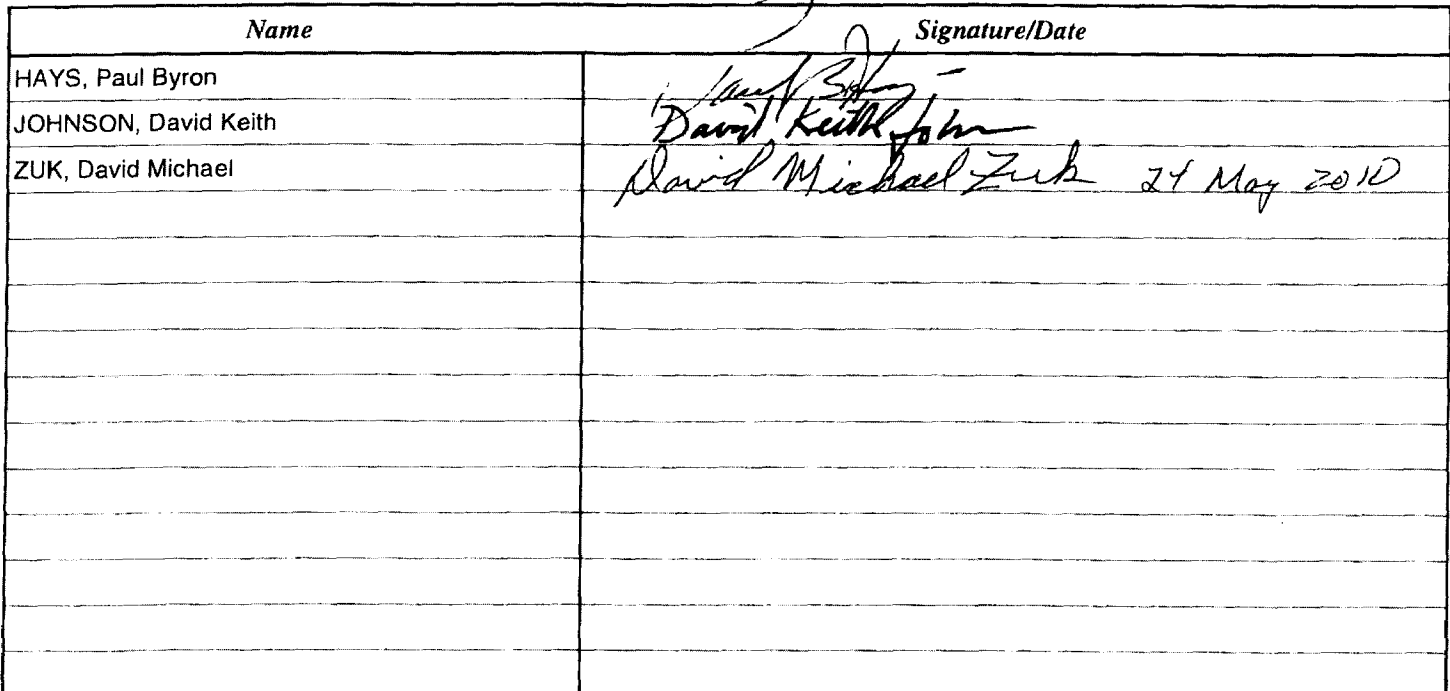 Name Signature/Date
HAYS, Paul Byron Paul B Hays
JOHNSON, David Keith David Keith John
ZUK, David Michael David Michael Zuk 24 May 2010